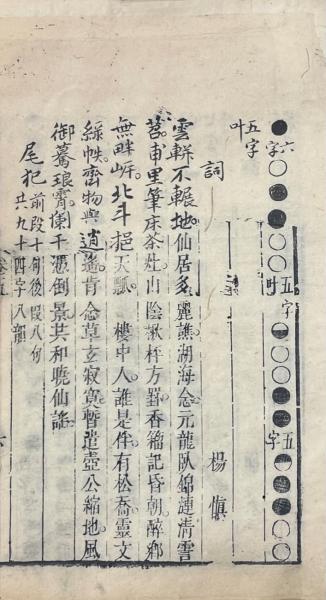 六字
五字叶
五字叶
五字
詞
楊慎
雲軿不輾地仙居多麗譙湖海念元龍队錦漣清霅
苕甫里筆床茶灶山陰楸枰方罫香篘記昏朝醉鄉
無畔岸北斗挹天瓢 樓中人誰是伴有松喬靈文
綠帙齊物與逍遙肯念草玄寂寞暫遣壺公縮地風
御驀琅霄闌干憑倒景共和曉仙謠
尾犯 前段十句後段八句
共九十四字八韻